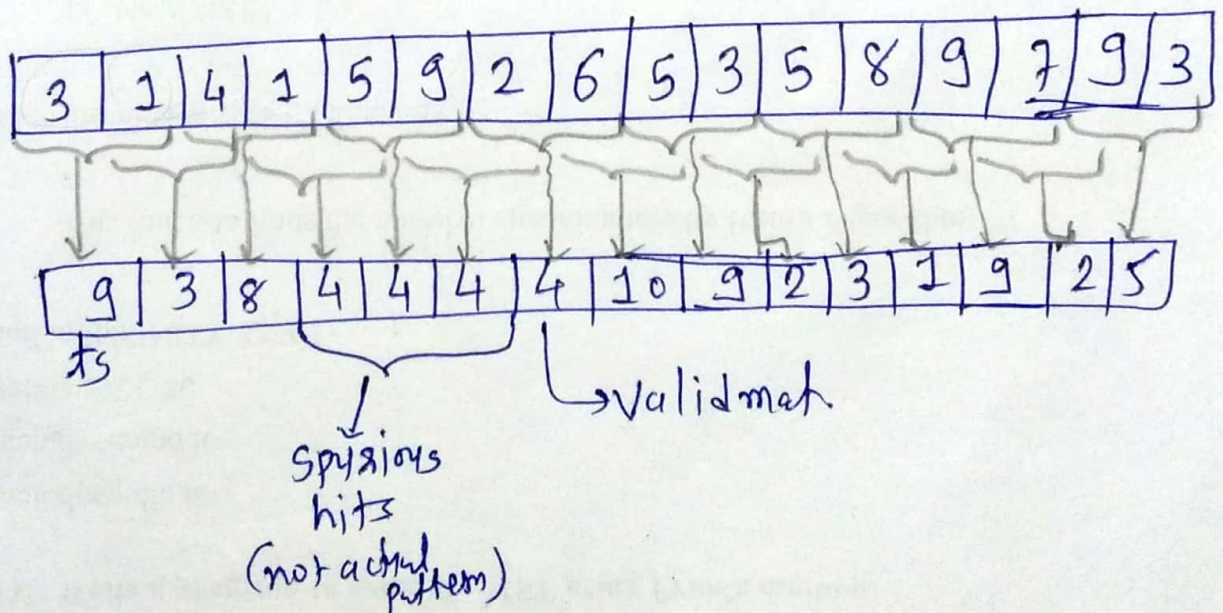 3 1 4 1 5 9 2 6 5 3 5 8 9 7 9 3
9 3 8 4 4 4 4 10 9 2 3 1 9 2 5
ts
validmat
Spurious
hits
(not actual
pattern)